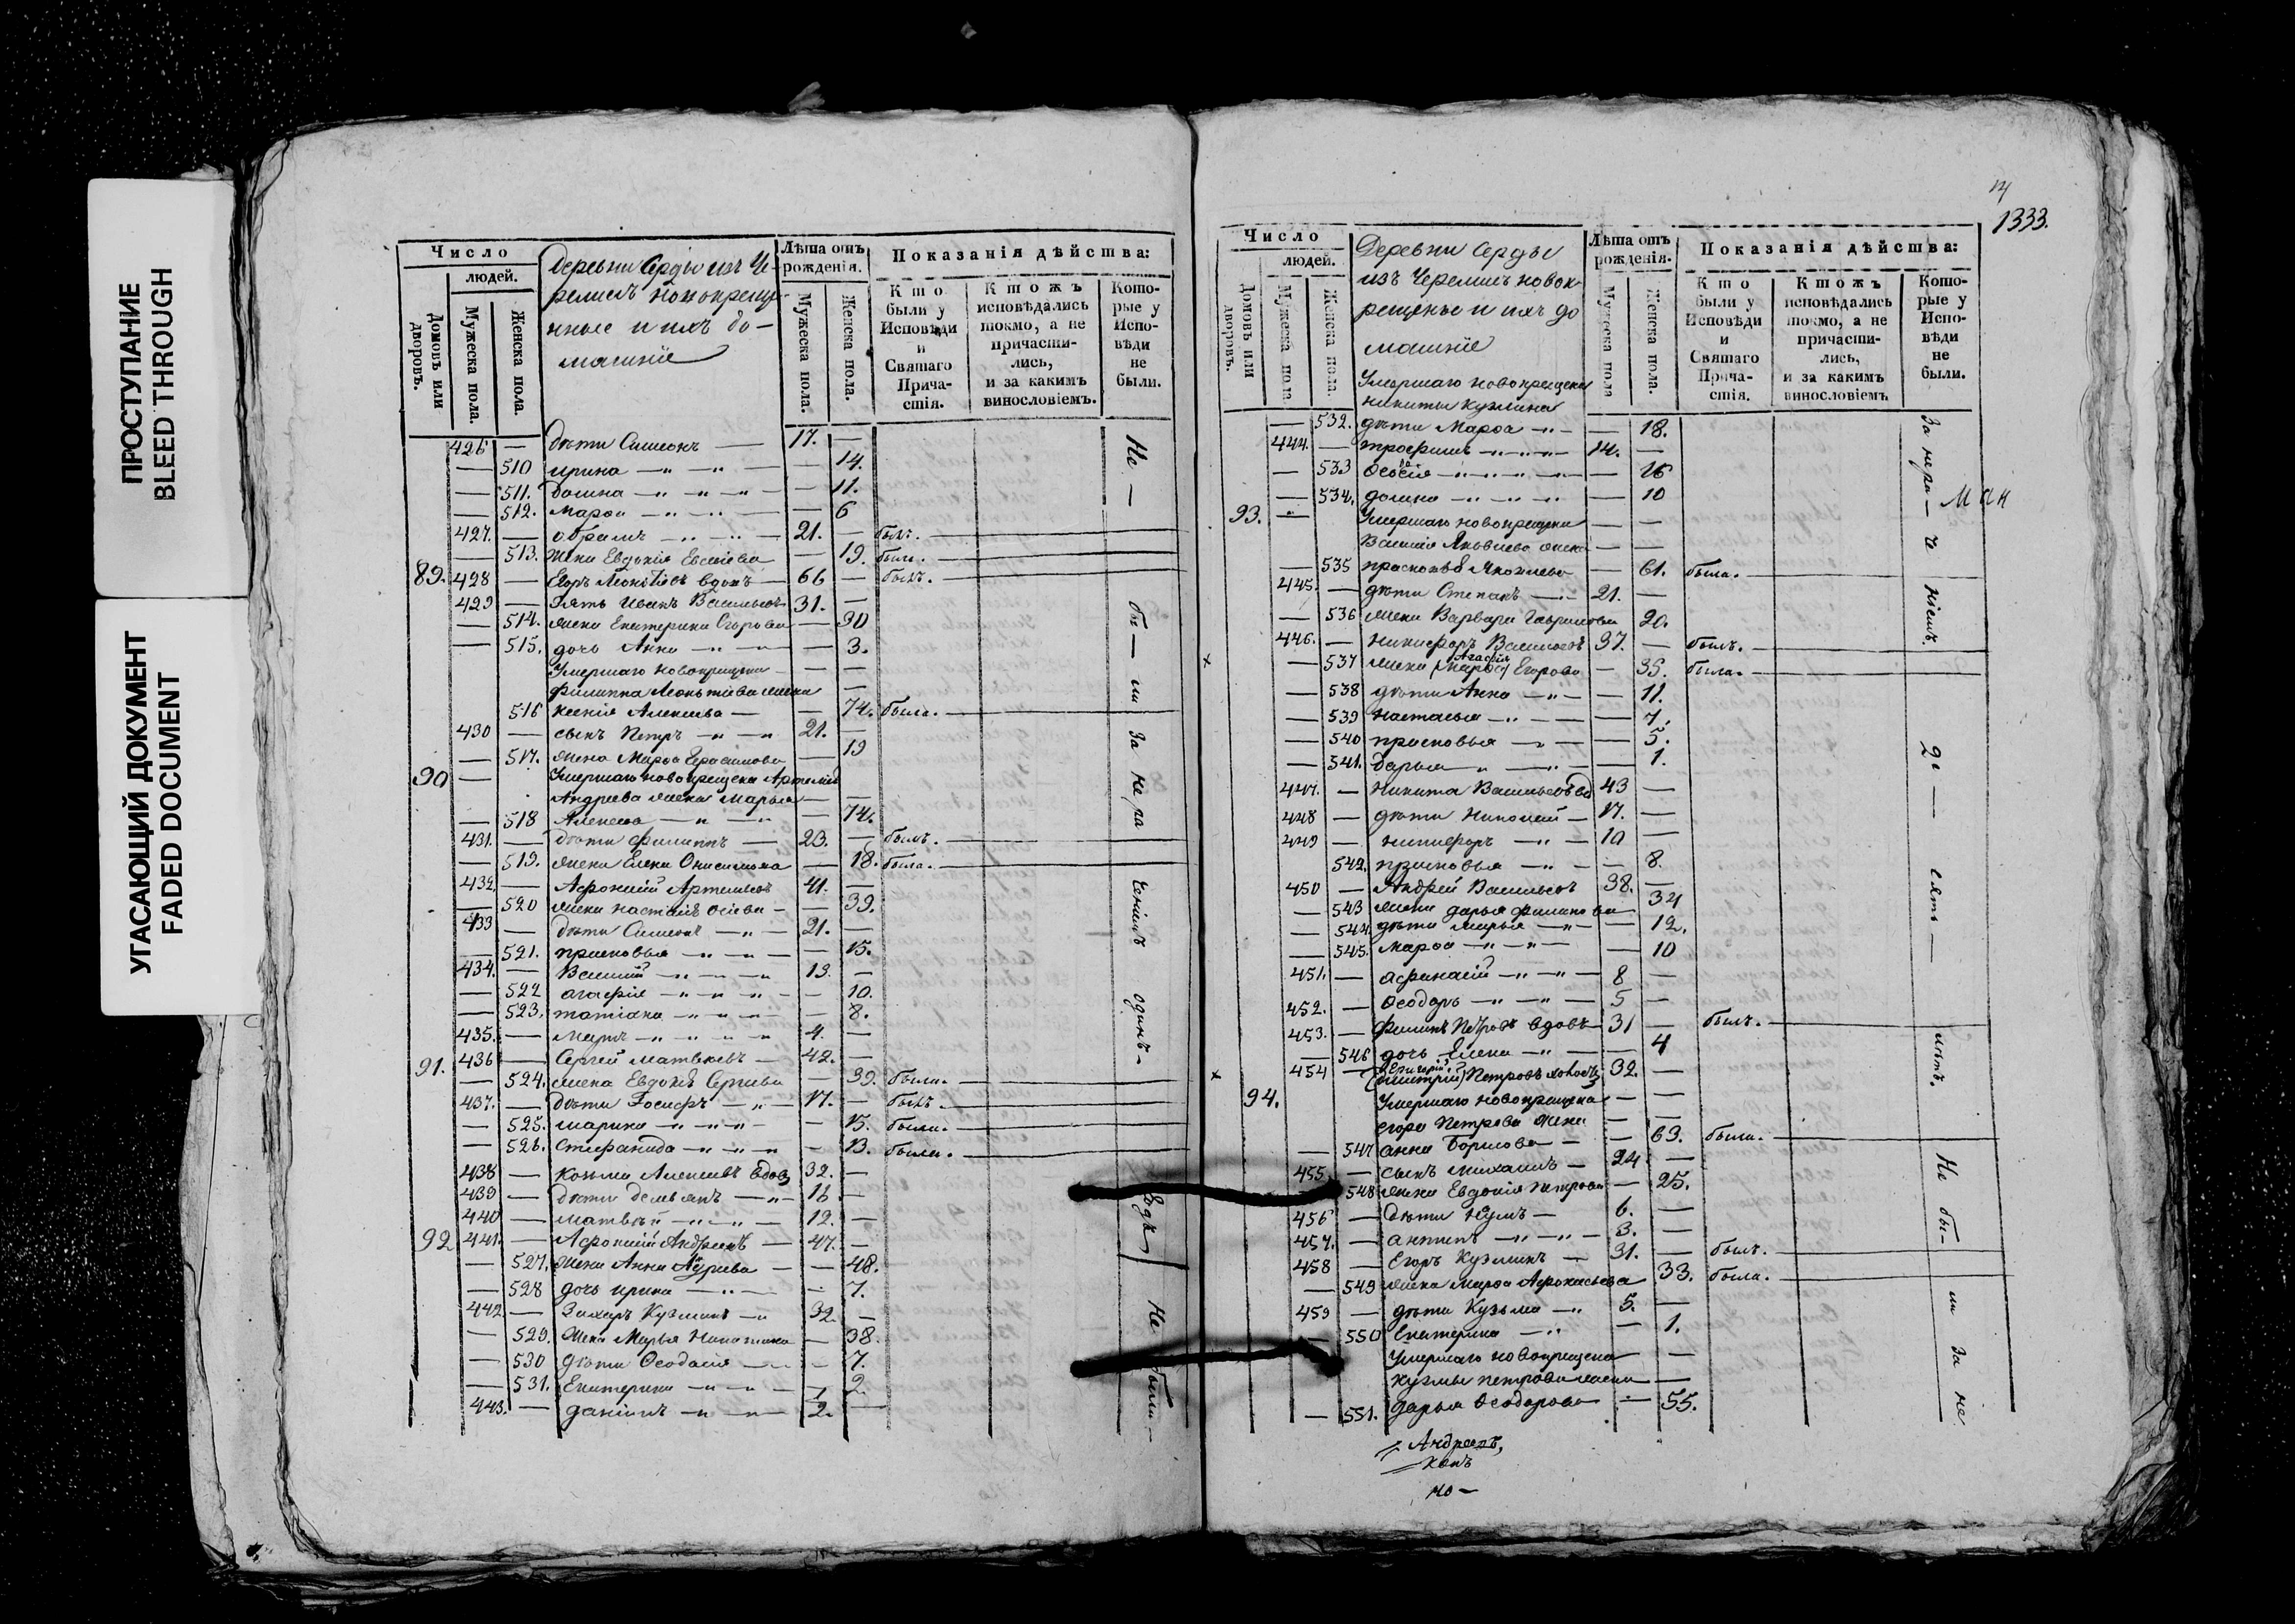 ПРОСТУПАНИЕ
BLEED THROUGH
УГАСАЮЩИЙ ДОКУМЕНТ
FADED DOCUMENT
Число
людей.
Домовъ или дворовъ.
Мужеска пола.
Женска пола.
Деревни Серды изъ Че-
ремисъ новокреще-
нные и ихъ до-
машніе
Лѣта отъ рожденія.
Мужеска пола.
Женска пола.
Показанія дѣйства:
Кто были у Исповѣди и Святаго Причастія.
Ктожъ исповѣдались токмо, а не причастились, и за какимъ винословіемъ.
Которые у Исповѣди не были.
426 — дѣти Симеонъ — 17. —
— 510 ирина — 14.
— 511. домна — 11.
— 512. Марѳа — 6
427. — обрамъ — 21. — былъ.
— 513. жена Евдокія Евсеіева — 19. была.
89. 428 — Егоръ Леонтіевъ вдовъ — 66 — былъ.
429 — Зять Иванъ Васильевъ 31. —
— 514. жена Екатерина Егорова — 30
— 515. дочь Анна — 3.
Умершаго новокрещена — —
Филиппа Леонтіева жена —
516 ксенія Алексѣева — 74. была.
430 — сынъ Петръ — 21. —
— 517. жена Марѳа Герасимова — 19
90 — Умершаго новокрещена Артемія
Андреева жена Марья —
— 518 Алексѣева — 74.
431. — дѣти Филиппъ — 23. — былъ.
— 519. жена Елена Онисимова — 18. была.
432. — Афонасій Артемьевъ 41. —
— 520 жена настасья — 39.
433 — дѣти Симеонъ — 21. —
— 521. прасковья — 15.
434. — Василій — 13. —
— 522 агафія — 10.
— 523. татіана — 8.
435. — Маркъ — 4. —
91. 436 — Сергей Матвѣевъ — 42. —
— 524. жена Евдокія Сергѣева — 39. была.
437. — дѣти Іосифъ — 17. — былъ.
— 525. марина — 15. была.
— 526. Стефанида — 13. была.
438 — Козьма Алексѣевъ вдовъ 32. —
439 — дѣти демьянъ — 16 —
440 — матвѣй — 12. —
92 441. — Афонасій Андреевъ — 47. —
— 527. жена Анна — 48.
— 528 дочь ирина — 7.
442 — Захаръ Кузминъ — 32. —
— 529. жена Марья — 38.
— 530 дѣти Ѳеодосія — 7.
— 531. Екатерина — 2.
443. — даніилъ — 2. —
Не — бы — ли за нера ченіемъ
Не были —
1333.
Число
людей.
Домовъ или дворовъ.
Мужеска пола
Женска пола.
Деревни Серды
изъ Черемисъ новок-
рещеные и ихъ до
машніе
Лѣта отъ рожденія.
Мужеска пола
Женска пола.
Показанія дѣйства:
Кто были у Исповѣди и Святаго Причастія.
Ктожъ исповѣдались токмо, а не причастились, и за какимъ винословіемъ
Которые у Исповѣди не были.
Умершаго новокрещена
никиты Кузмина
— 532. дѣти Марѳа — 18.
444. — трофимъ — 14. —
— 533 — 16
— 534. домна — 10
93. Умершаго новокрещена — —
Василія Яковлева жена — —
— 535 прасковья Яковлева — 61. была.
445. — дѣти Степанъ — 21. —
— 536 жена Варвара Гаврилова 20.
446. — никифоръ Васильевъ 37. — былъ.
— 537 жена (марѳа) Агафія Егорова — 35. была.
— 538 дѣти Анна — 11.
— 539 настасья — 7.
— 540 прасковья — 5.
— 541. дарья — 1.
447. — никита Васильевъ 43 —
448 — дѣти Николай — 17. —
449 — никифоръ — 10 —
542. прасковья — 8.
450 — Андрей Васильевъ 38. —
— 543 жена дарья Филипова 34
— 544. дѣти марья — 12.
— 545. марѳа — 10
451. — афанасій — 8 —
452. — Ѳеодоръ — 5 —
453. — Филипъ Петровъ вдовъ — 31 — былъ.
— 546 дочь Елена — 4
454 — (дмитрій) Григорій Петровъ 32. —
94. Умершаго новокрещена — —
егора Петрова жена — —
— 547 анна Борисова — 69. была.
455 — сынъ михаилъ — 24 —
548 жена Евдокія Петрова — 25.
456 — дѣти — 6. —
457. — антипъ — 3. —
458 — Егоръ Кузминъ — 31. — былъ.
— 549 жена марѳа Афонасьева 33. была.
459 — дѣти Кузьма — 5. —
— 550 Екатерина — 1.
Умершаго новокрещена —
кузмы петрова жена —
— 551. дарья Ѳеодорова — 55.
За нера — че ніемъ.
Не бы- ли за не